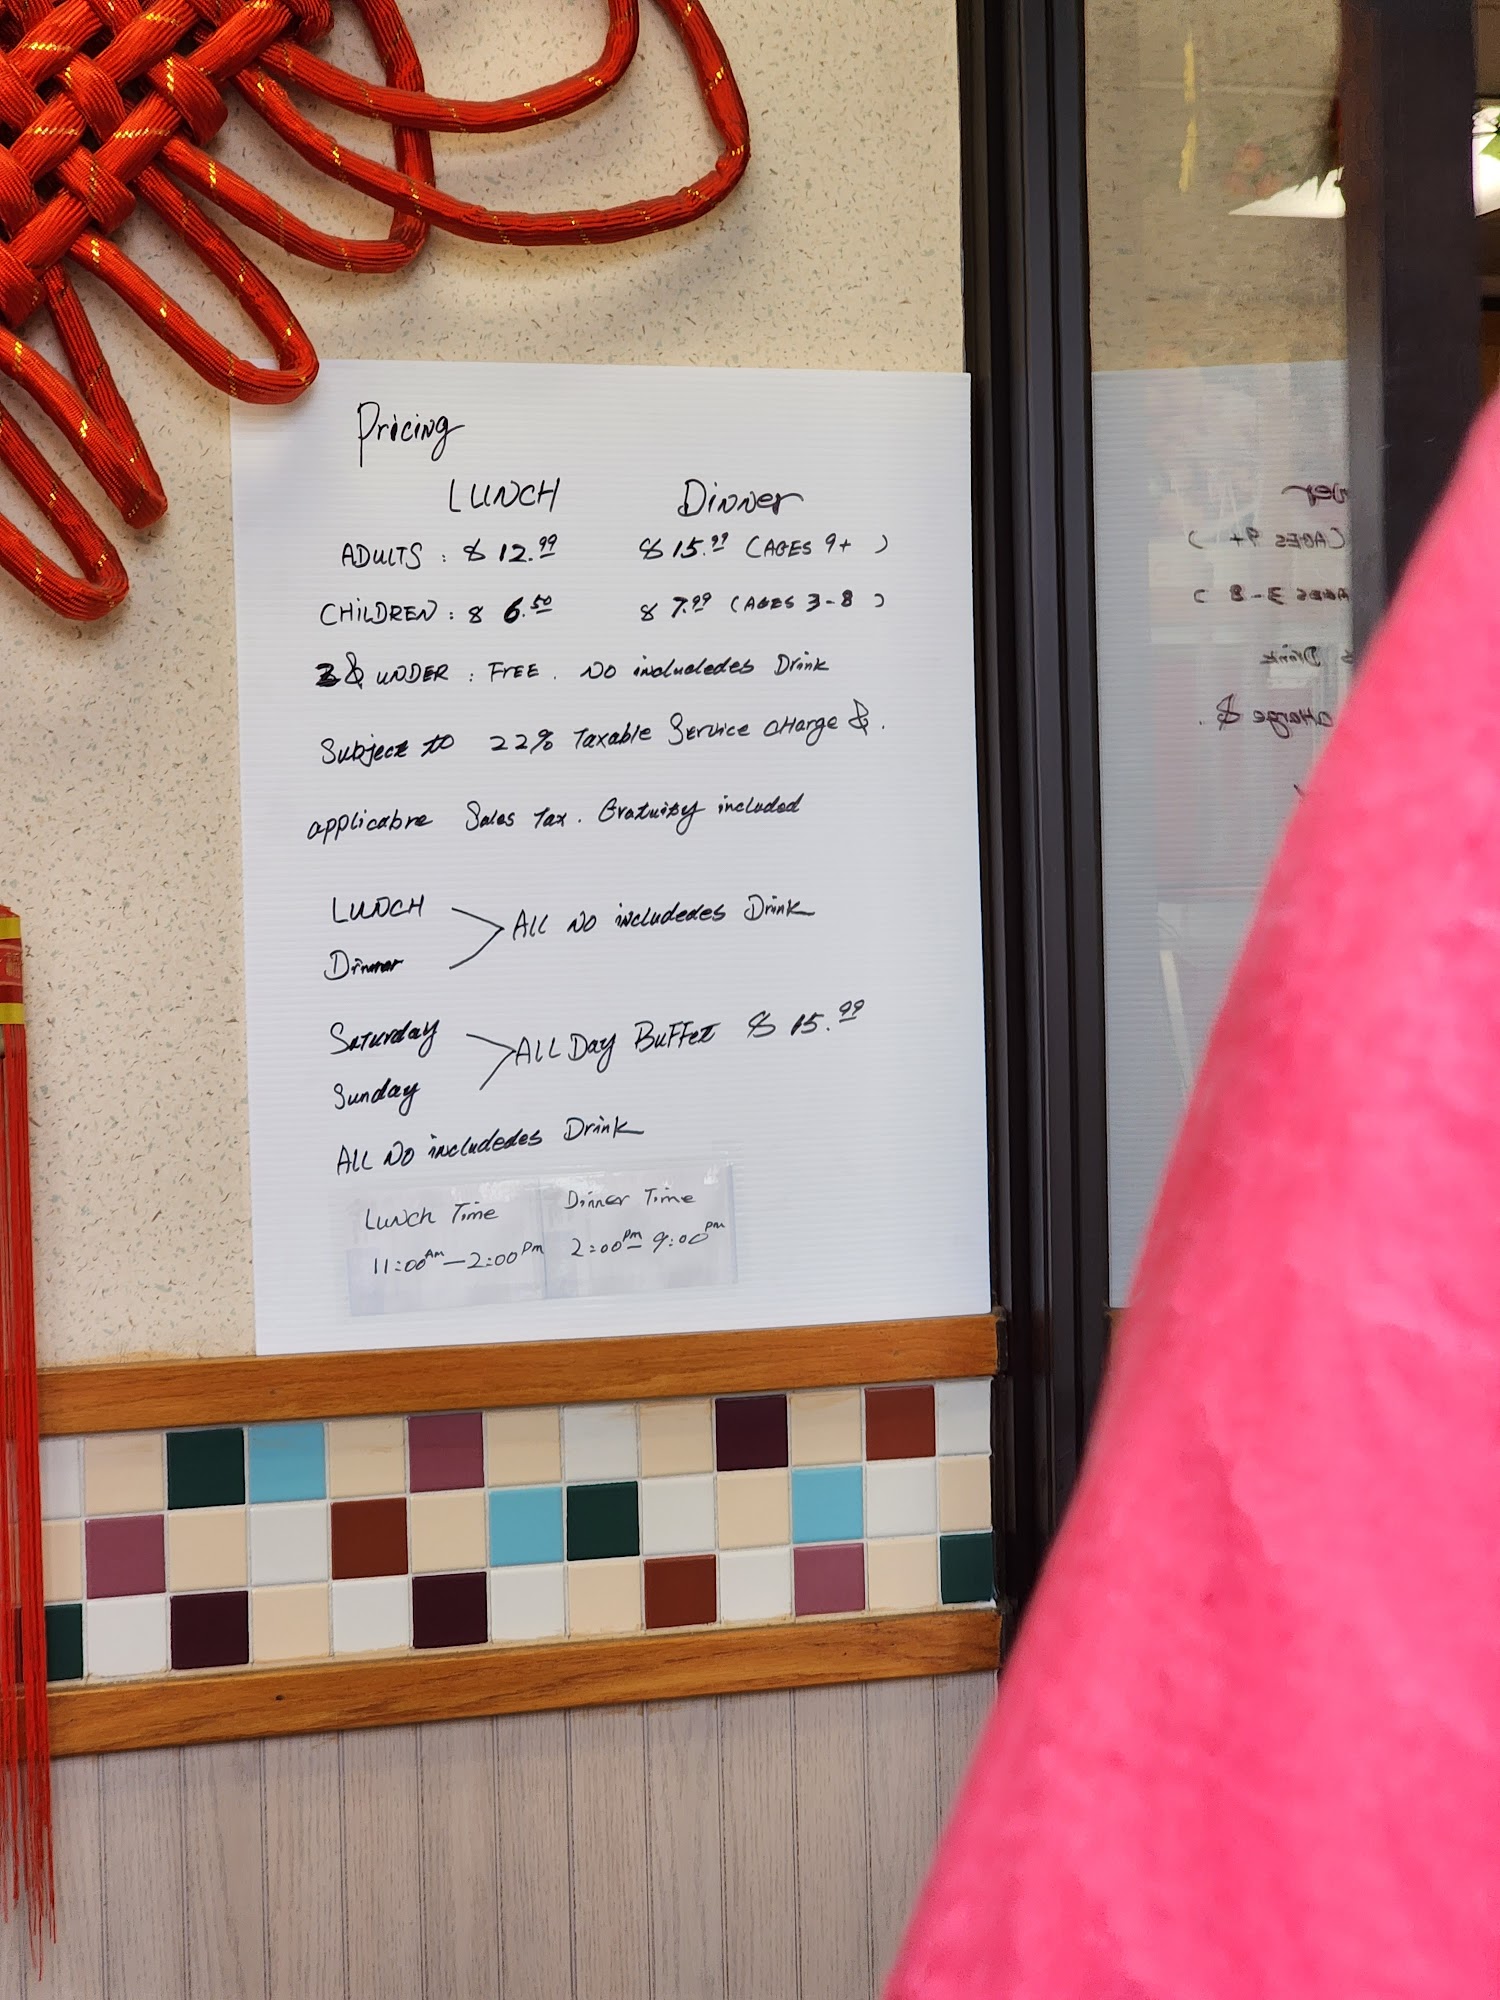 Pricing
LUNCH Dinner
ADULTS : $ 12.99 $ 15.99 (AGES 9+ )
CHILDREN : $ 6.50 $ 7.99 (AGES 3-8 )
& UNDER : FREE . NO includedes Drink
Subject to 22% Taxable Service charge & .
applicabre Sales Tax . Gratuity included
LUNCH
Dinner
All NO includedes Drink
Saturday
Sunday
All Day Buffet $ 15.99
All NO includedes Drink
Lunch Time
11:00Am — 2:00Pm
Dinner Time
2:00Pm — 9:00Pm